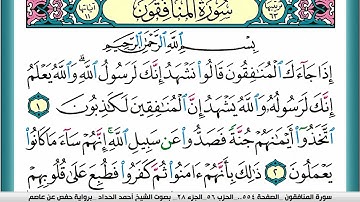 سورتها ٦٣
سُورَةُ المُنَافِقُونَ
آياتها ١١
بِسْمِ ٱللَّهِ ٱلرَّحْمَٰنِ ٱلرَّحِيمِ
إِذَا جَآءَكَ ٱلْمُنَٰفِقُونَ قَالُوا۟ نَشْهَدُ إِنَّكَ لَرَسُولُ ٱللَّهِ ۗ وَٱللَّهُ يَعْلَمُ
إِنَّكَ لَرَسُولُهُۥ وَٱللَّهُ يَشْهَدُ إِنَّ ٱلْمُنَٰفِقِينَ لَكَٰذِبُونَ ١
ٱتَّخَذُوٓا۟ أَيْمَٰنَهُمْ جُنَّةً فَصَدُّوا۟ عَن سَبِيلِ ٱللَّهِ ۚ إِنَّهُمْ سَآءَ مَا كَانُوا۟
يَعْمَلُونَ ٢ ذَٰلِكَ بِأَنَّهُمْ ءَامَنُوا۟ ثُمَّ كَفَرُوا۟ فَطُبِعَ عَلَىٰ قُلُوبِهِمْ
سورة المنافقون الصفحة ٥٥٤... الحزب ٥٦ الجزء ٢٨ بصوت الشيخ أحمد الحداد برواية حفص عن عاصم